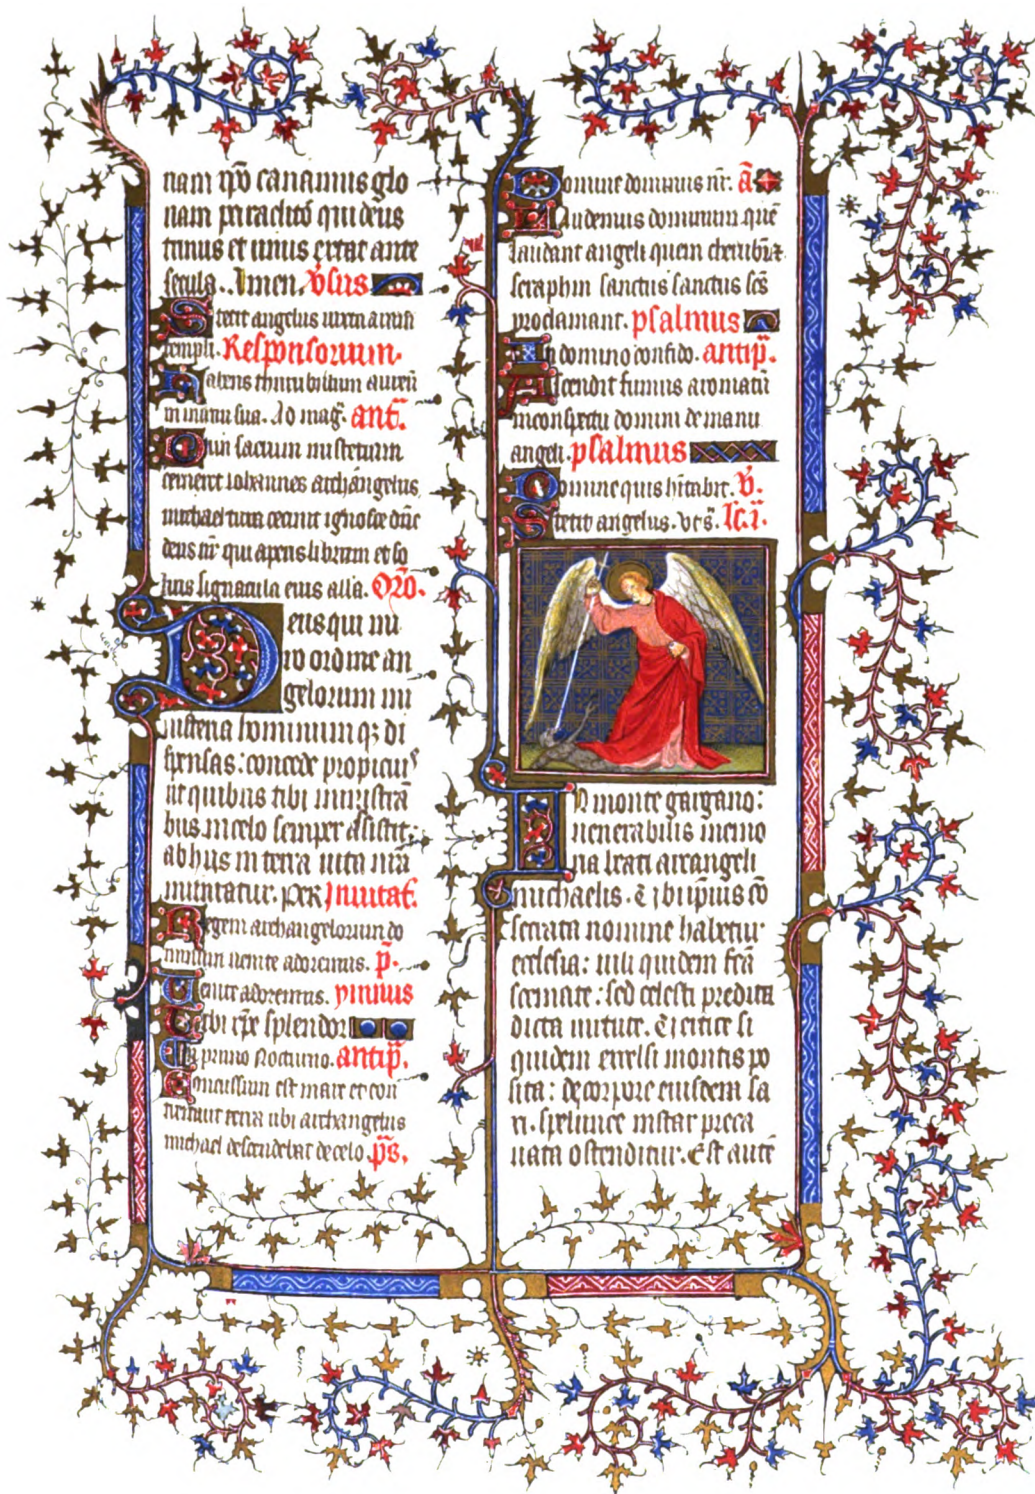 riam ꝓ canamus glo
riam paraclito qui deus
trinus et unus extat ante
secula. Amen. v̄sus
Stetit angelus iuxta aram
templi. Responsorium.
Habens thuribulum aureū
in manu sua. Ad mag̃. ant̃.
Dum sacrum misterium
cerneret iohannes archangelus
michael tuba cecinit ignosce dñe
deus nr̄ qui aperis librum et sol
uis signacula eius all'a. Oro.
Deus qui mi
ro ordine an
gelorum mi
nisteria hominum qꝫ di
spensas: concede propiciuˢ
ut quibus tibi ministrā
tibus in celo semper assistit:
ab hiis in terra uita nrā
muniatur. per Inuitat̃.
Regem archangelorum do
minum uenite adoremus. p̄.
Uenite adoremus. ymnus
Tibi xp̄e splendor
In primo Nocturno. antip̄.
Concussum est mare et con
tremuit terra ubi archangelus
michael descendebat de celo. p̄s.
Domine dominus nr̄. ā
Laudemus dominum quē
laudant angeli quem cherubin ⁊
seraphin sanctus sanctus sc̄s
proclamant. psalmus
In domino confido. antip̄.
Ascendit fumus aromatū
in conspectu domini de manu
angeli. psalmus
Domine quis h̄itabit. v̄.
Stetit angelus. vr̄s. lc̄. i.
In monte gargano:
uenerabilis memo
ria beati arcangeli
michaelis. ⁊ ibi ip̄ius cō
secrata nomine habetur
ecclesia: uili quidem fcā
scemate: sed celesti predita
dicta uirtute. Uertice si
quidem excelsi montis po
sita: de corpore eiusdem sa
xi. spelunce instar preca
uata ostenditur. Est autē